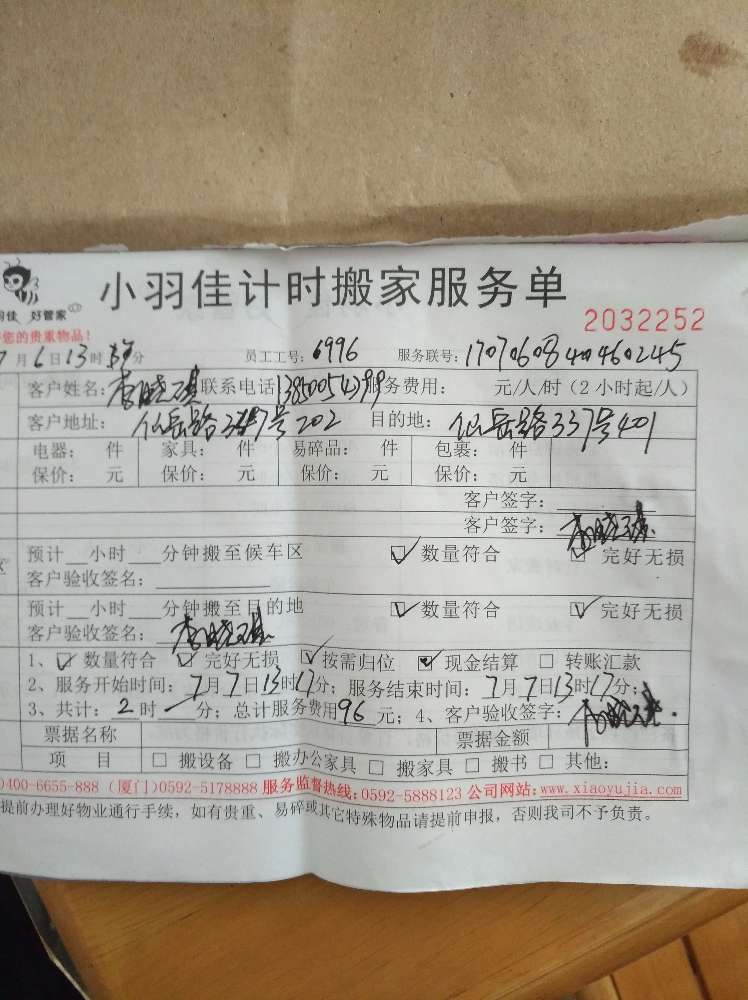 小羽佳计时搬家服务单
羽佳 好管家
2032252
您的贵重物品!
7月6日13时 分 员工工号: 6996 服务联号: 17070608404460245
客户姓名: 李晓 联系电话 服务费用: 元/人/时(2小时起/人)
客户地址: 仙岳路 号202 目的地: 仙岳路337号401
电器: 件 家具: 件 易碎品: 件 包裹: 件
保价: 元 保价: 元 保价: 元 保价: 元
客户签字:
客户签字: 李晓
预计 小时 分钟搬至候车区 ☑ 数量符合 □ 完好无损
客户验收签名:
预计 小时 分钟搬至目的地 ☑ 数量符合 ☑ 完好无损
客户验收签名: 李晓
1、☑ 数量符合 ☑ 完好无损 ☑ 按需归位 ☑ 现金结算 □ 转账汇款
2、服务开始时间: 7月7日13时17分; 服务结束时间: 7月7日13时17分;
3、共计: 2时一分; 总计服务费用96元; 4、客户验收签字: 李晓
票据名称 票据金额
项 目 □ 搬设备 □ 搬办公家具 □ 搬家具 □ 搬书 □ 其他:
0400-6655-888 (厦门)0592-5178888 服务监督热线:0592-5888123 公司网站:www.xiaoyujia.com
提前办理好物业通行手续，如有贵重、易碎或其它特殊物品请提前申报，否则我司不予负责。